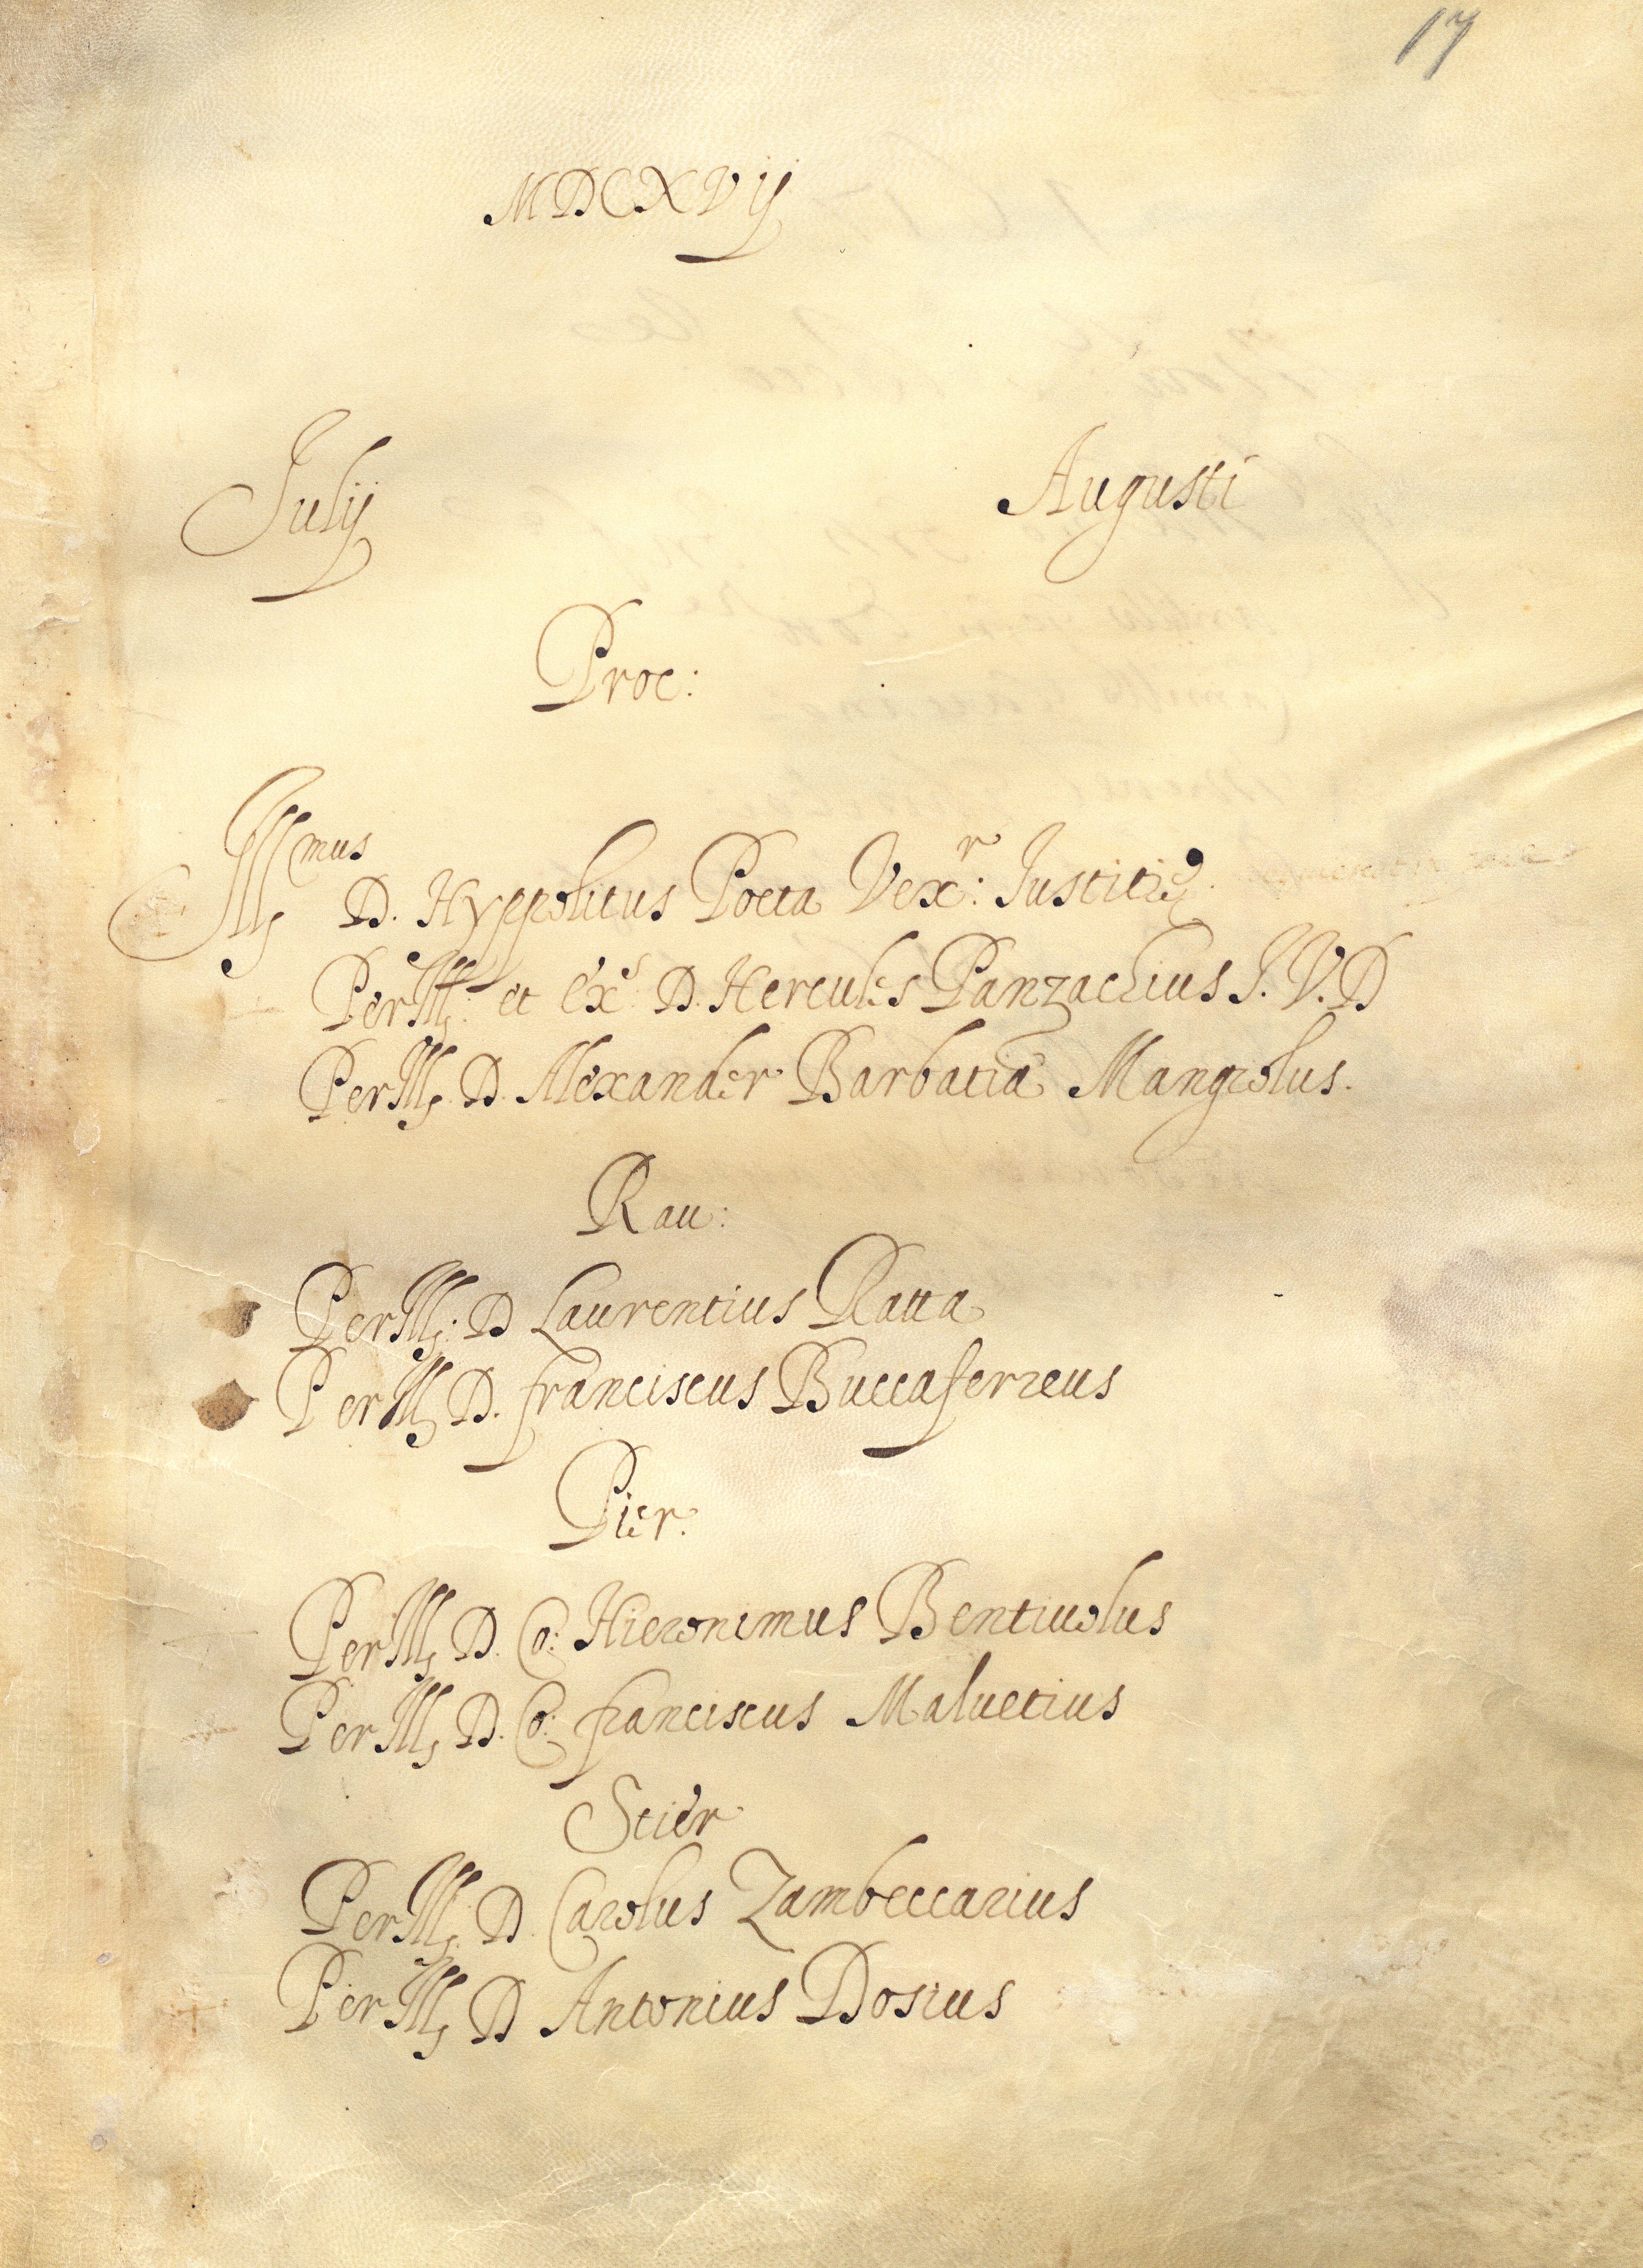 17
MDCXVij
Julij Augusti
Proc:
Illmus D. Hyppolitus Poeta Vexr: Justitię
Perill: et Exs D. Hercules Panzachius J. V. D
Perill. D. Alexander Barbatia Mangiolus.
Rau:
Perill: D Laurentius Ratta
Perill D. franciscus Buccaferreus
Pier.
Perill D. Co: Hieronimus Bentiuolus
Perill D. Co: franciscus Maluetius
Stier
Perill. D. Carolus Zambeccarius
Perill D Antonius Dosius